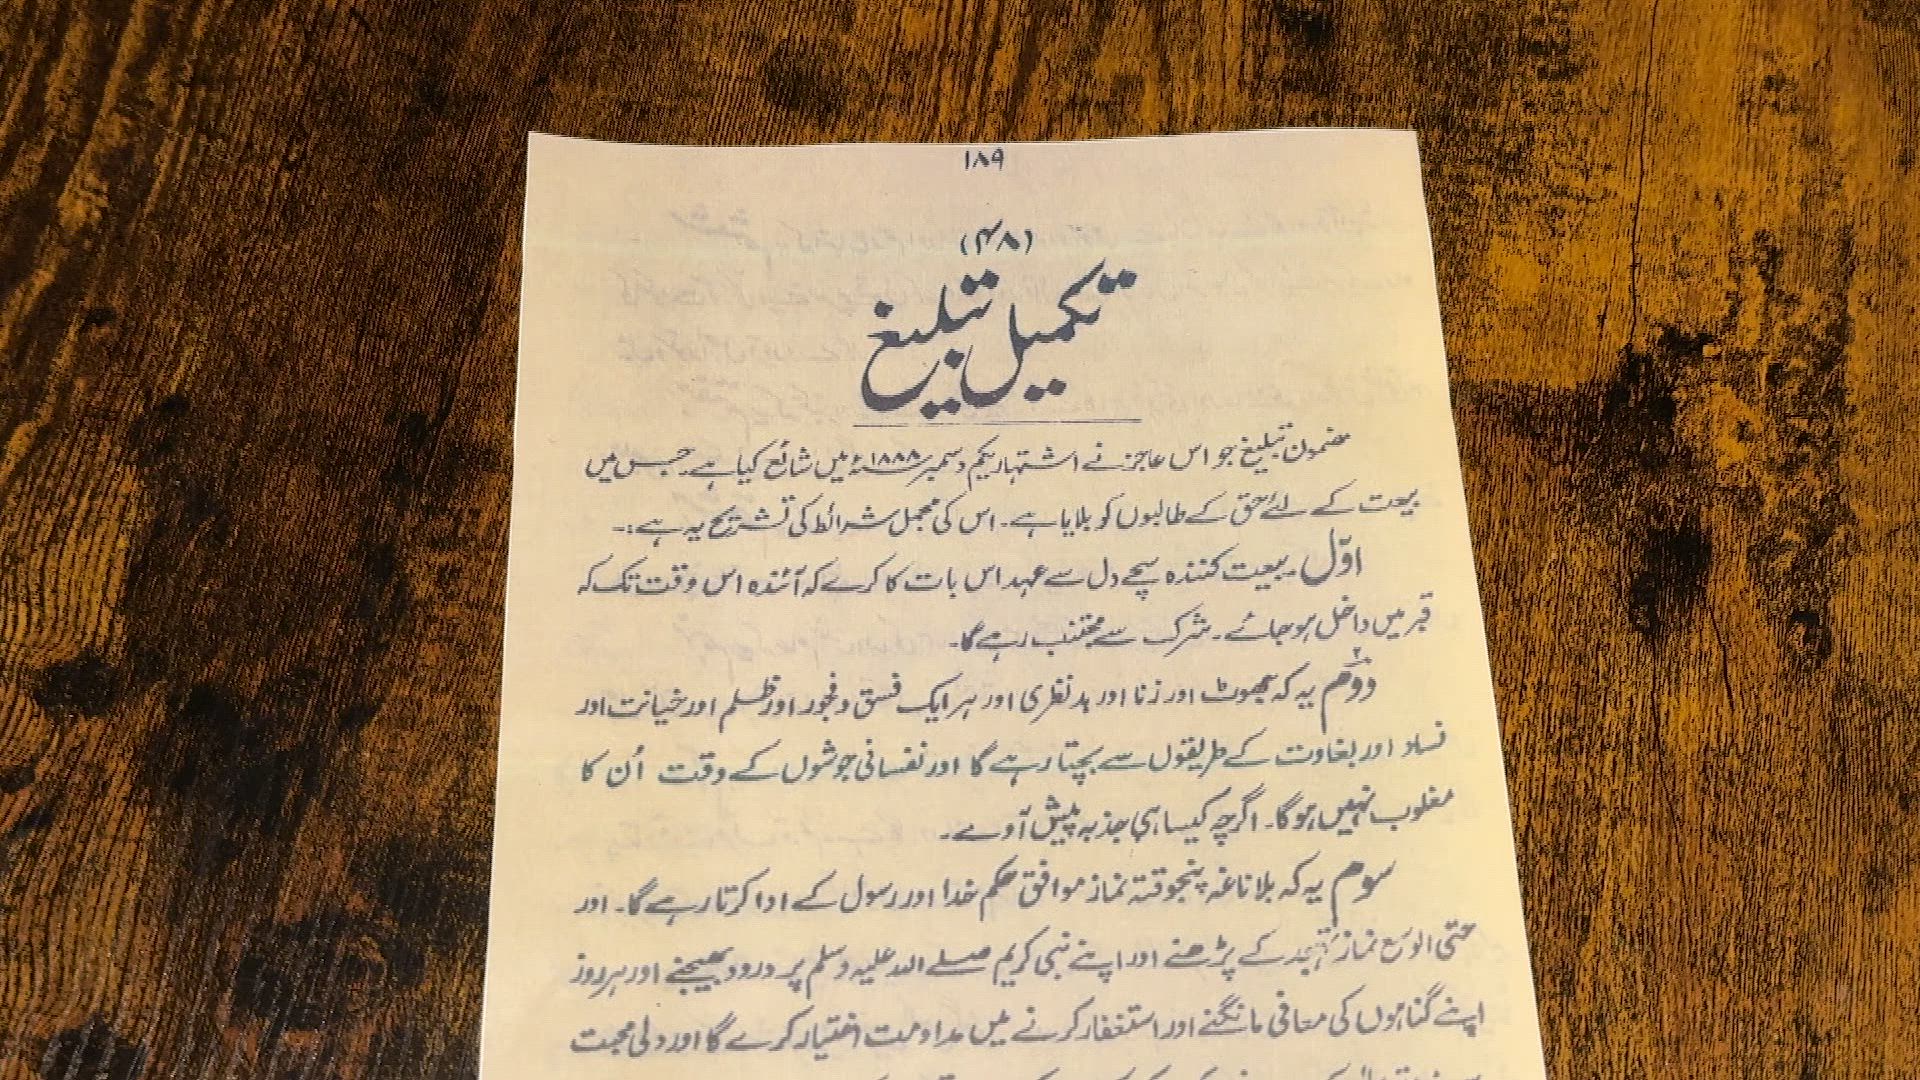 ۱۸۹
(۴۸)
تکمیل تبلیغ
مضمون تبلیغ جو اس عاجز نے اشتہار یکم دسمبر ۱۸۸۸ء میں شائع کیا ہے۔ جس میں
بیعت کے لئے حق کے طالبوں کو بلایا ہے۔ اس کی مجمل شرائط کی تشریح یہ ہے:۔
اوّل۔ بیعت کنندہ سچے دل سے عہد اس بات کا کرے کہ آئندہ اس وقت تک کہ
قبر میں داخل ہو جائے۔ شرک سے مجتنب رہے گا۔
دوّم یہ کہ جھوٹ اور زنا اور بدنظری اور ہر ایک فسق و فجور اور ظلم اور خیانت اور
فساد اور بغاوت کے طریقوں سے بچتا رہے گا اور نفسانی جوشوں کے وقت اُن کا
مغلوب نہیں ہوگا۔ اگرچہ کیسا ہی جذبہ پیش آوے۔
سوم یہ کہ بلاناغہ پنجوقتہ نماز موافق حکم خدا اور رسول کے ادا کرتا رہے گا۔ اور
حتی الوسع نماز تہجد کے پڑھنے اور اپنے نبی کریم صلے اللہ علیہ وسلم پر درود بھیجنے اور ہر روز
اپنے گناہوں کی معافی مانگنے اور استغفار کرنے میں مداومت اختیار کرے گا اور دلی محبت